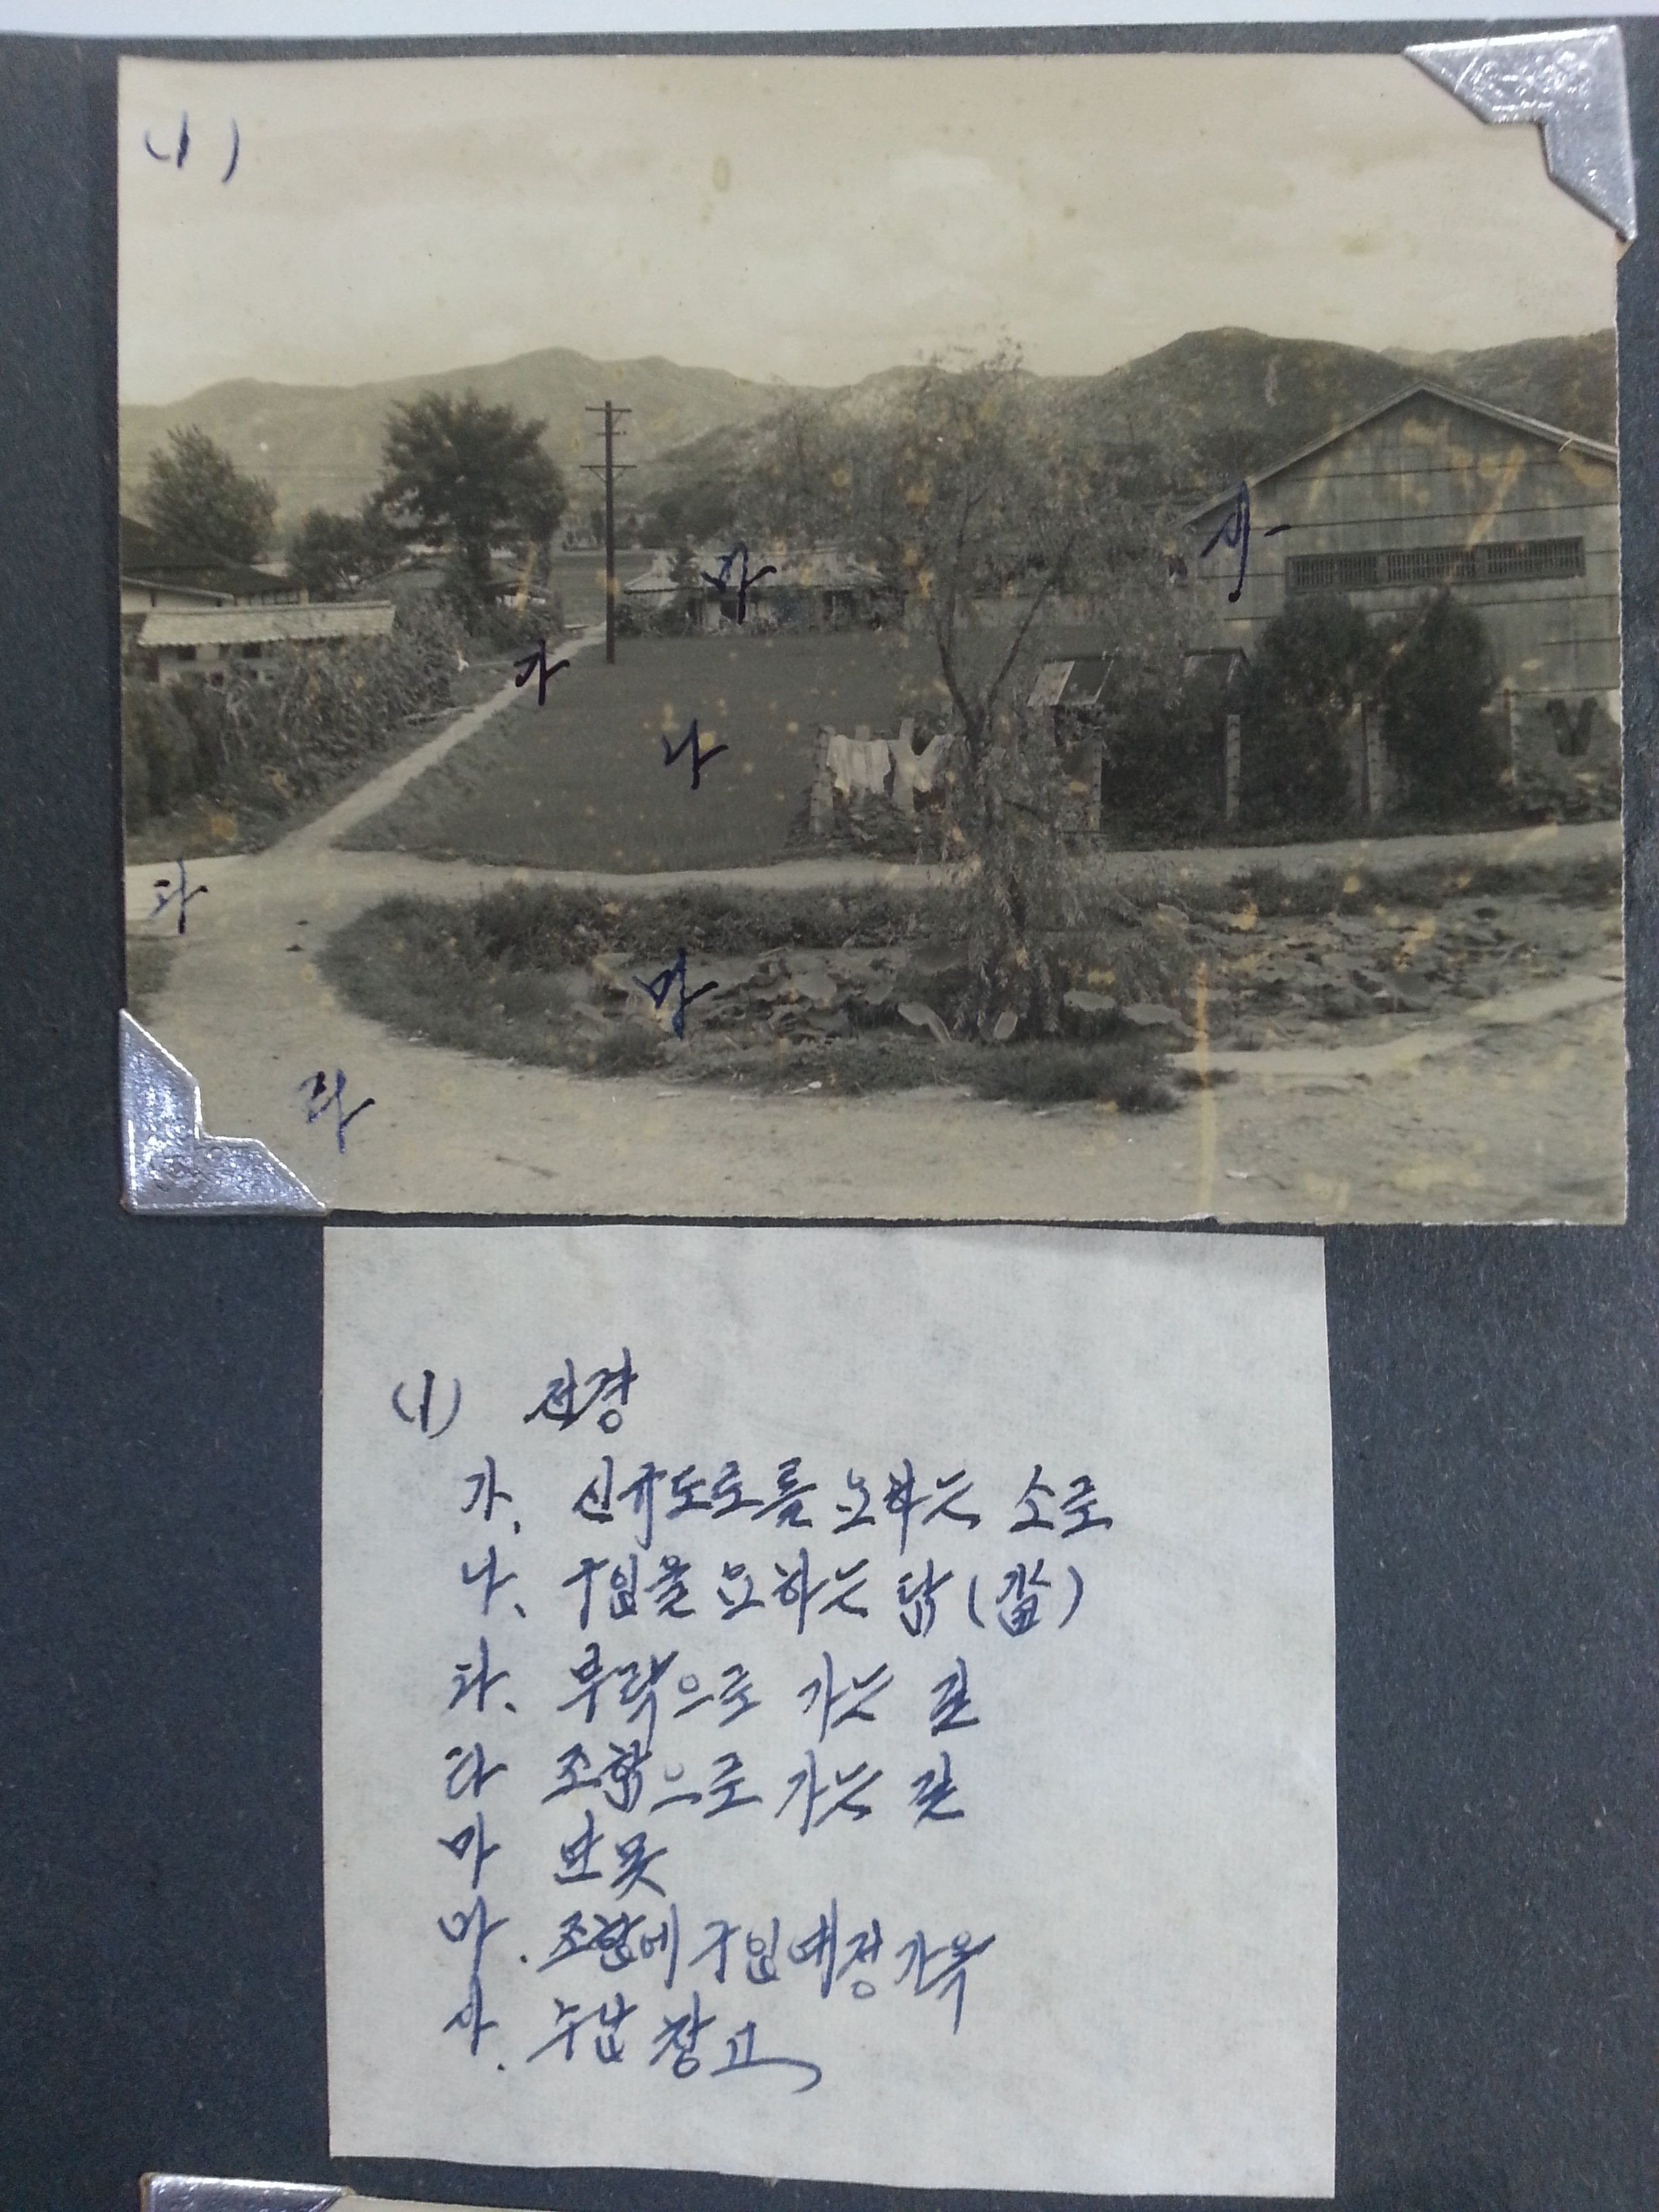 (1)
사
바
가
나
다
마
라
(1) 전경
가. 신규도로를 요하는 소로
나. 구입을 요하는 답(畓)
다. 부락으로 가는 길
라 조합으로 가는 길
마 연못
바. 조합에 구입예정가옥
사. 수납창고